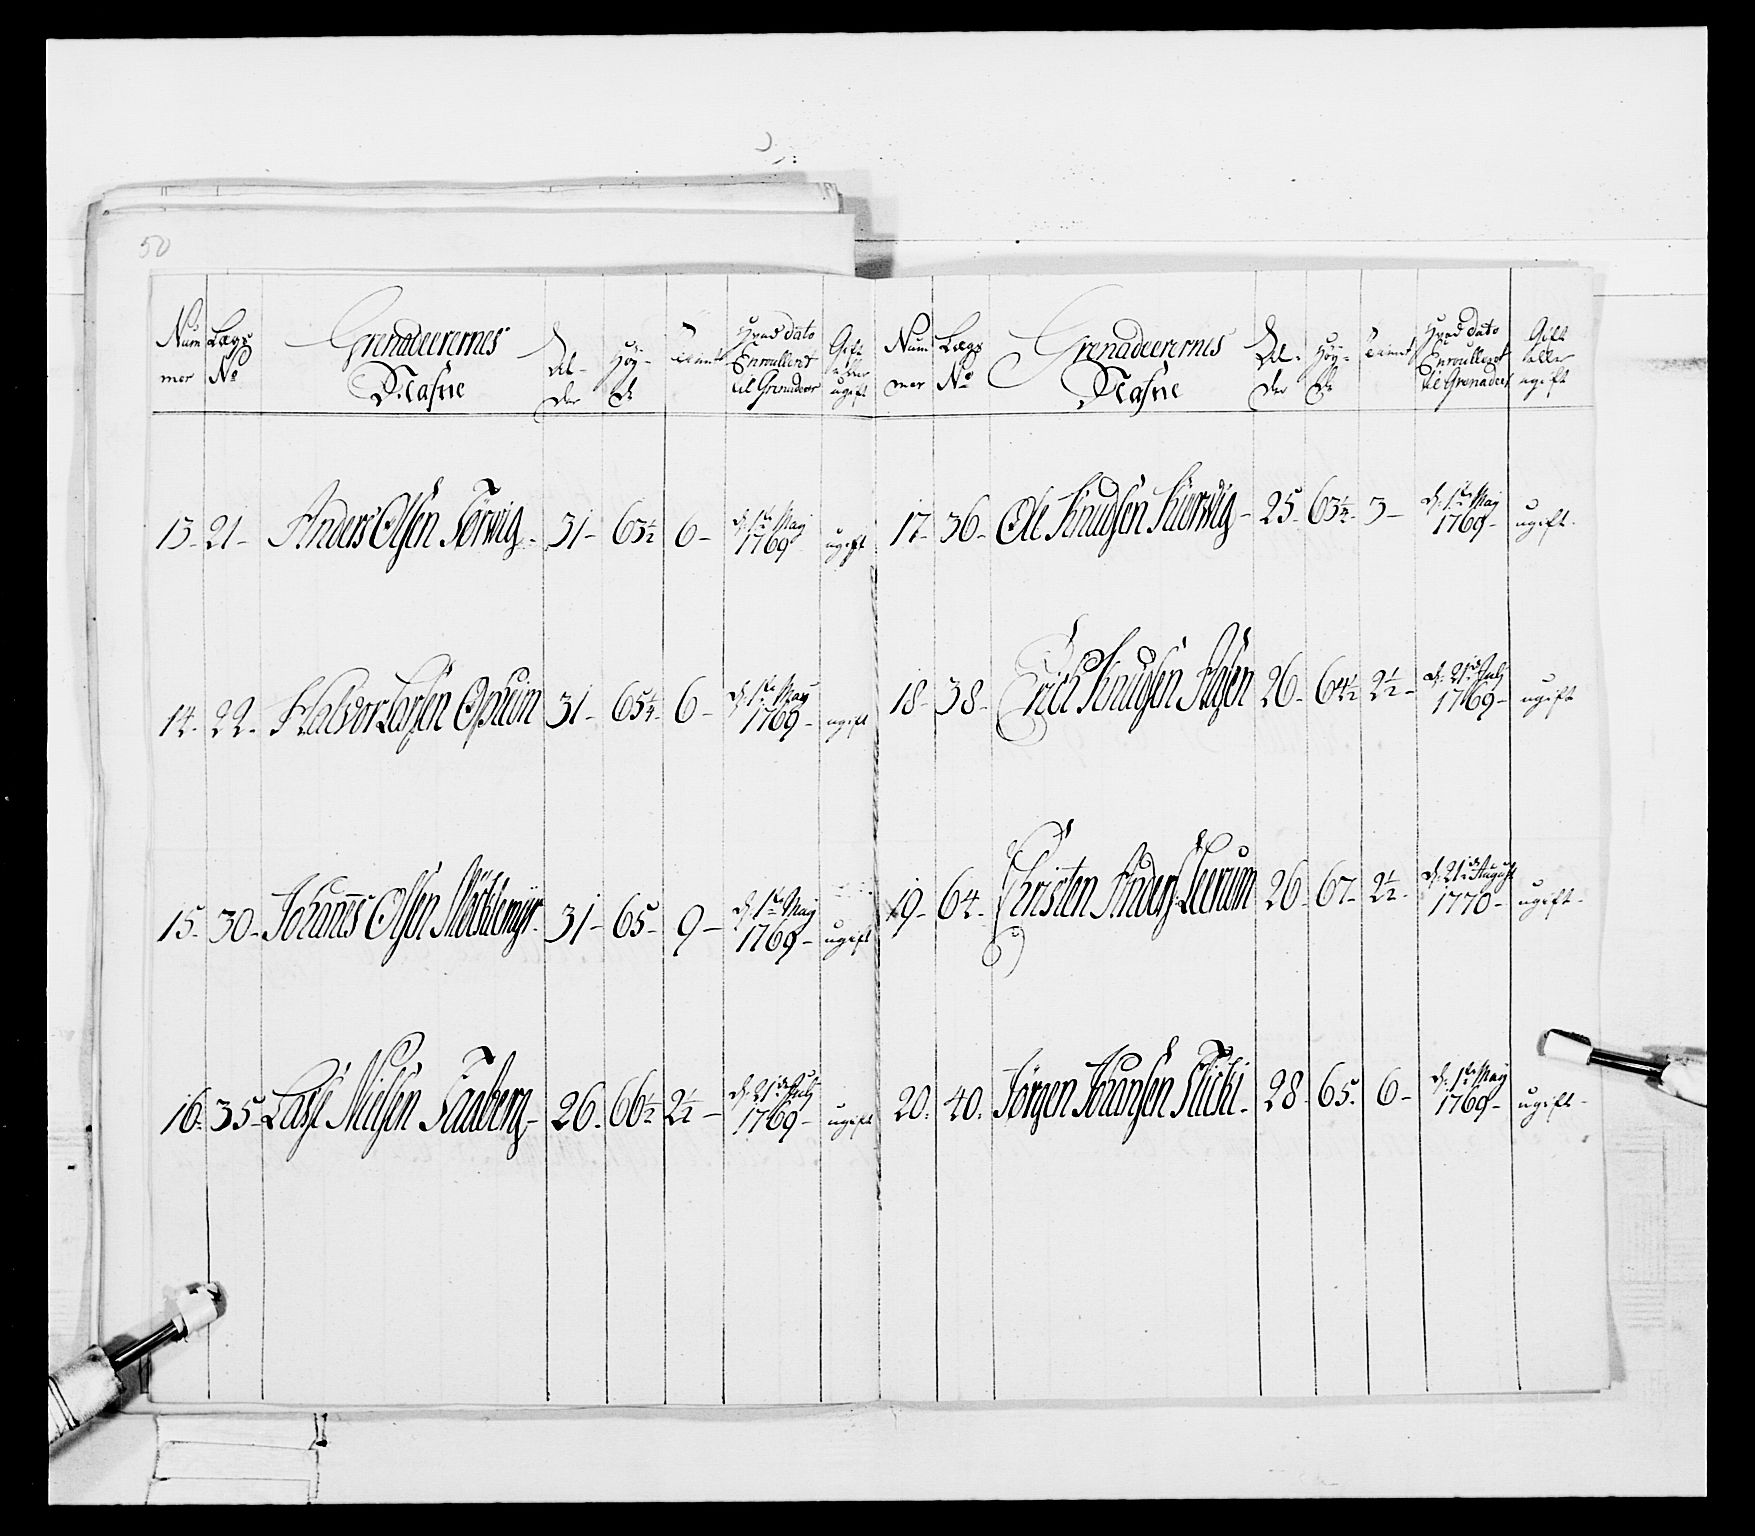 50
Nummer Lægs No Grenadeerernes Nafne Alder Høyde Tient Hvad dato Enroullert til Grenadeer Gift eller ugift
13- 21- Anders Olsen Torwig- 31- 63½ 6- d. 1te May 1769 ugift
14- 22- Halvor Larsen Opsuin 31- 65¼- 6- d. 1te May 1769- ugift
15- 30- Johannes Olsen 31- 65- 9- d. 1te May 1769- ugift
16- 35- Lasse Nielsen Taaberg- 26- 66½ 2½- d. 21de July 1769- ugift
Nummer Lægs No Grenadeerernes Nafne Alder Høyde Tient Hvad dato Enroullert til Grenadeer Gift eller ugift
17- 36- Ole Knudsen 25- 63¼- 3- d. 1te May 1769- ugift-
18- 38- Erich Knudsen 26- 64½ 2½- d. 21de July 1769- ugift
19- 64- Christen Anders: Leerum 26 67- 2½- d. 21de August 1770- ugift-
20- 40- Jørgen Johansen 28- 65- 6- d. 1te May 1769- ugift-